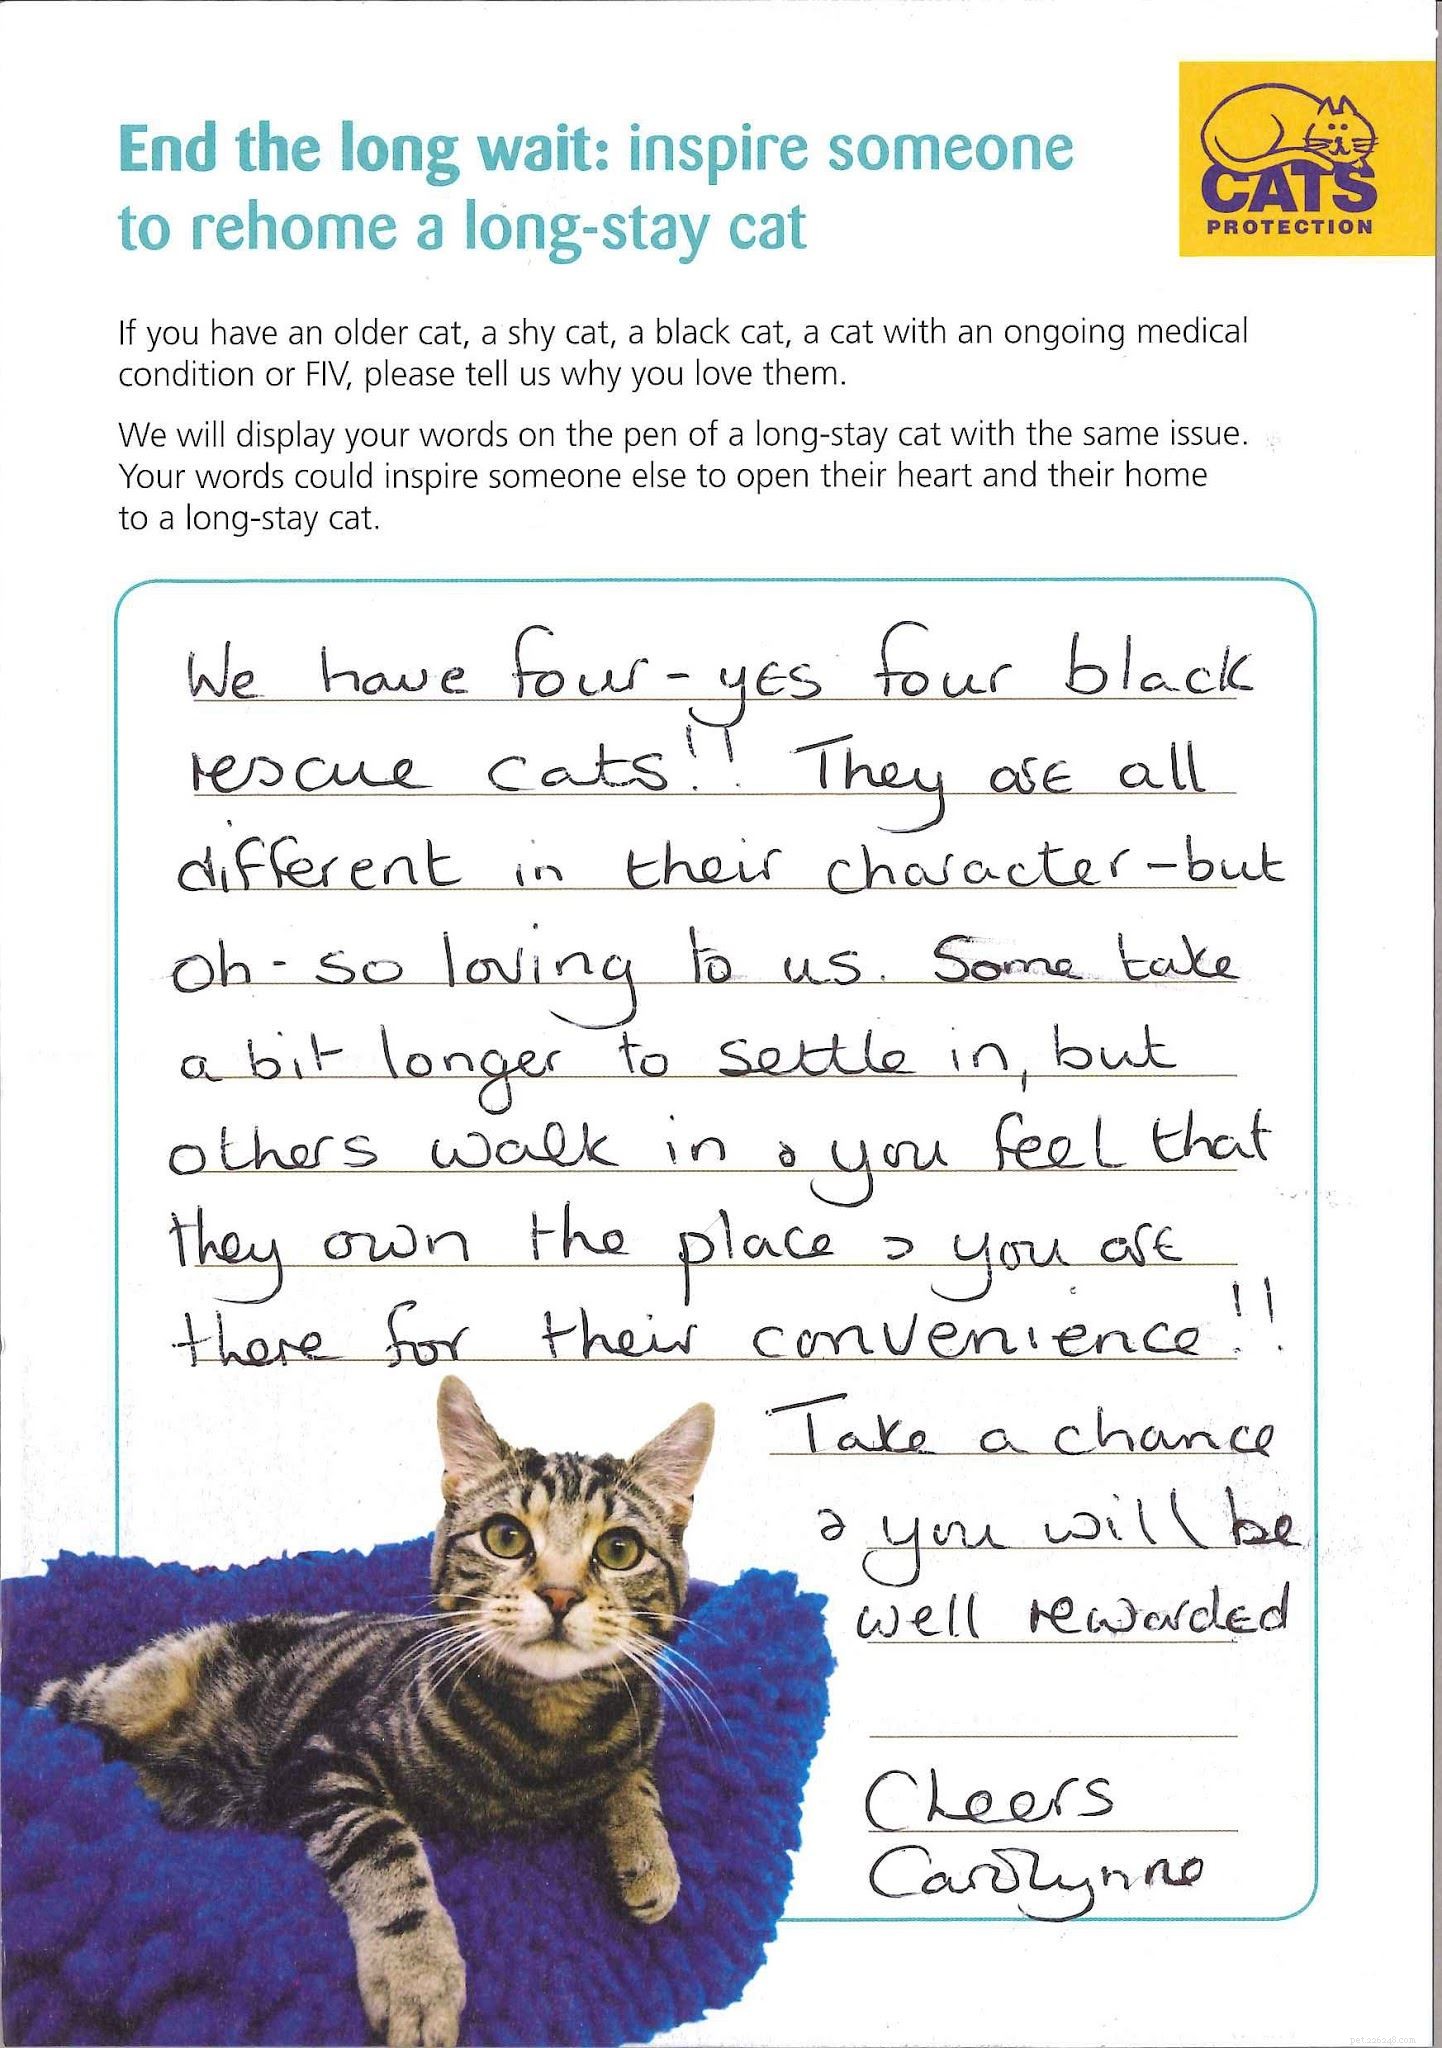 End the long wait: inspire someone
to rehome a long-stay cat
CATS
PROTECTION
If you have an older cat, a shy cat, a black cat, a cat with an ongoing medical
condition or FIV, please tell us why you love them.
We will display your words on the pen of a long-stay cat with the same issue.
Your words could inspire someone else to open their heart and their home
to a long-stay cat.
We have four - yes four black
rescue cats!! They are all
different in their character - but
oh - so loving to us. Some take
a bit longer to settle in, but
others walk in & you feel that
they own the place & you are
there for their convenience!!
Take a chance
& you will be
well rewarded
Cheers
Carolynne
pet.226248.com